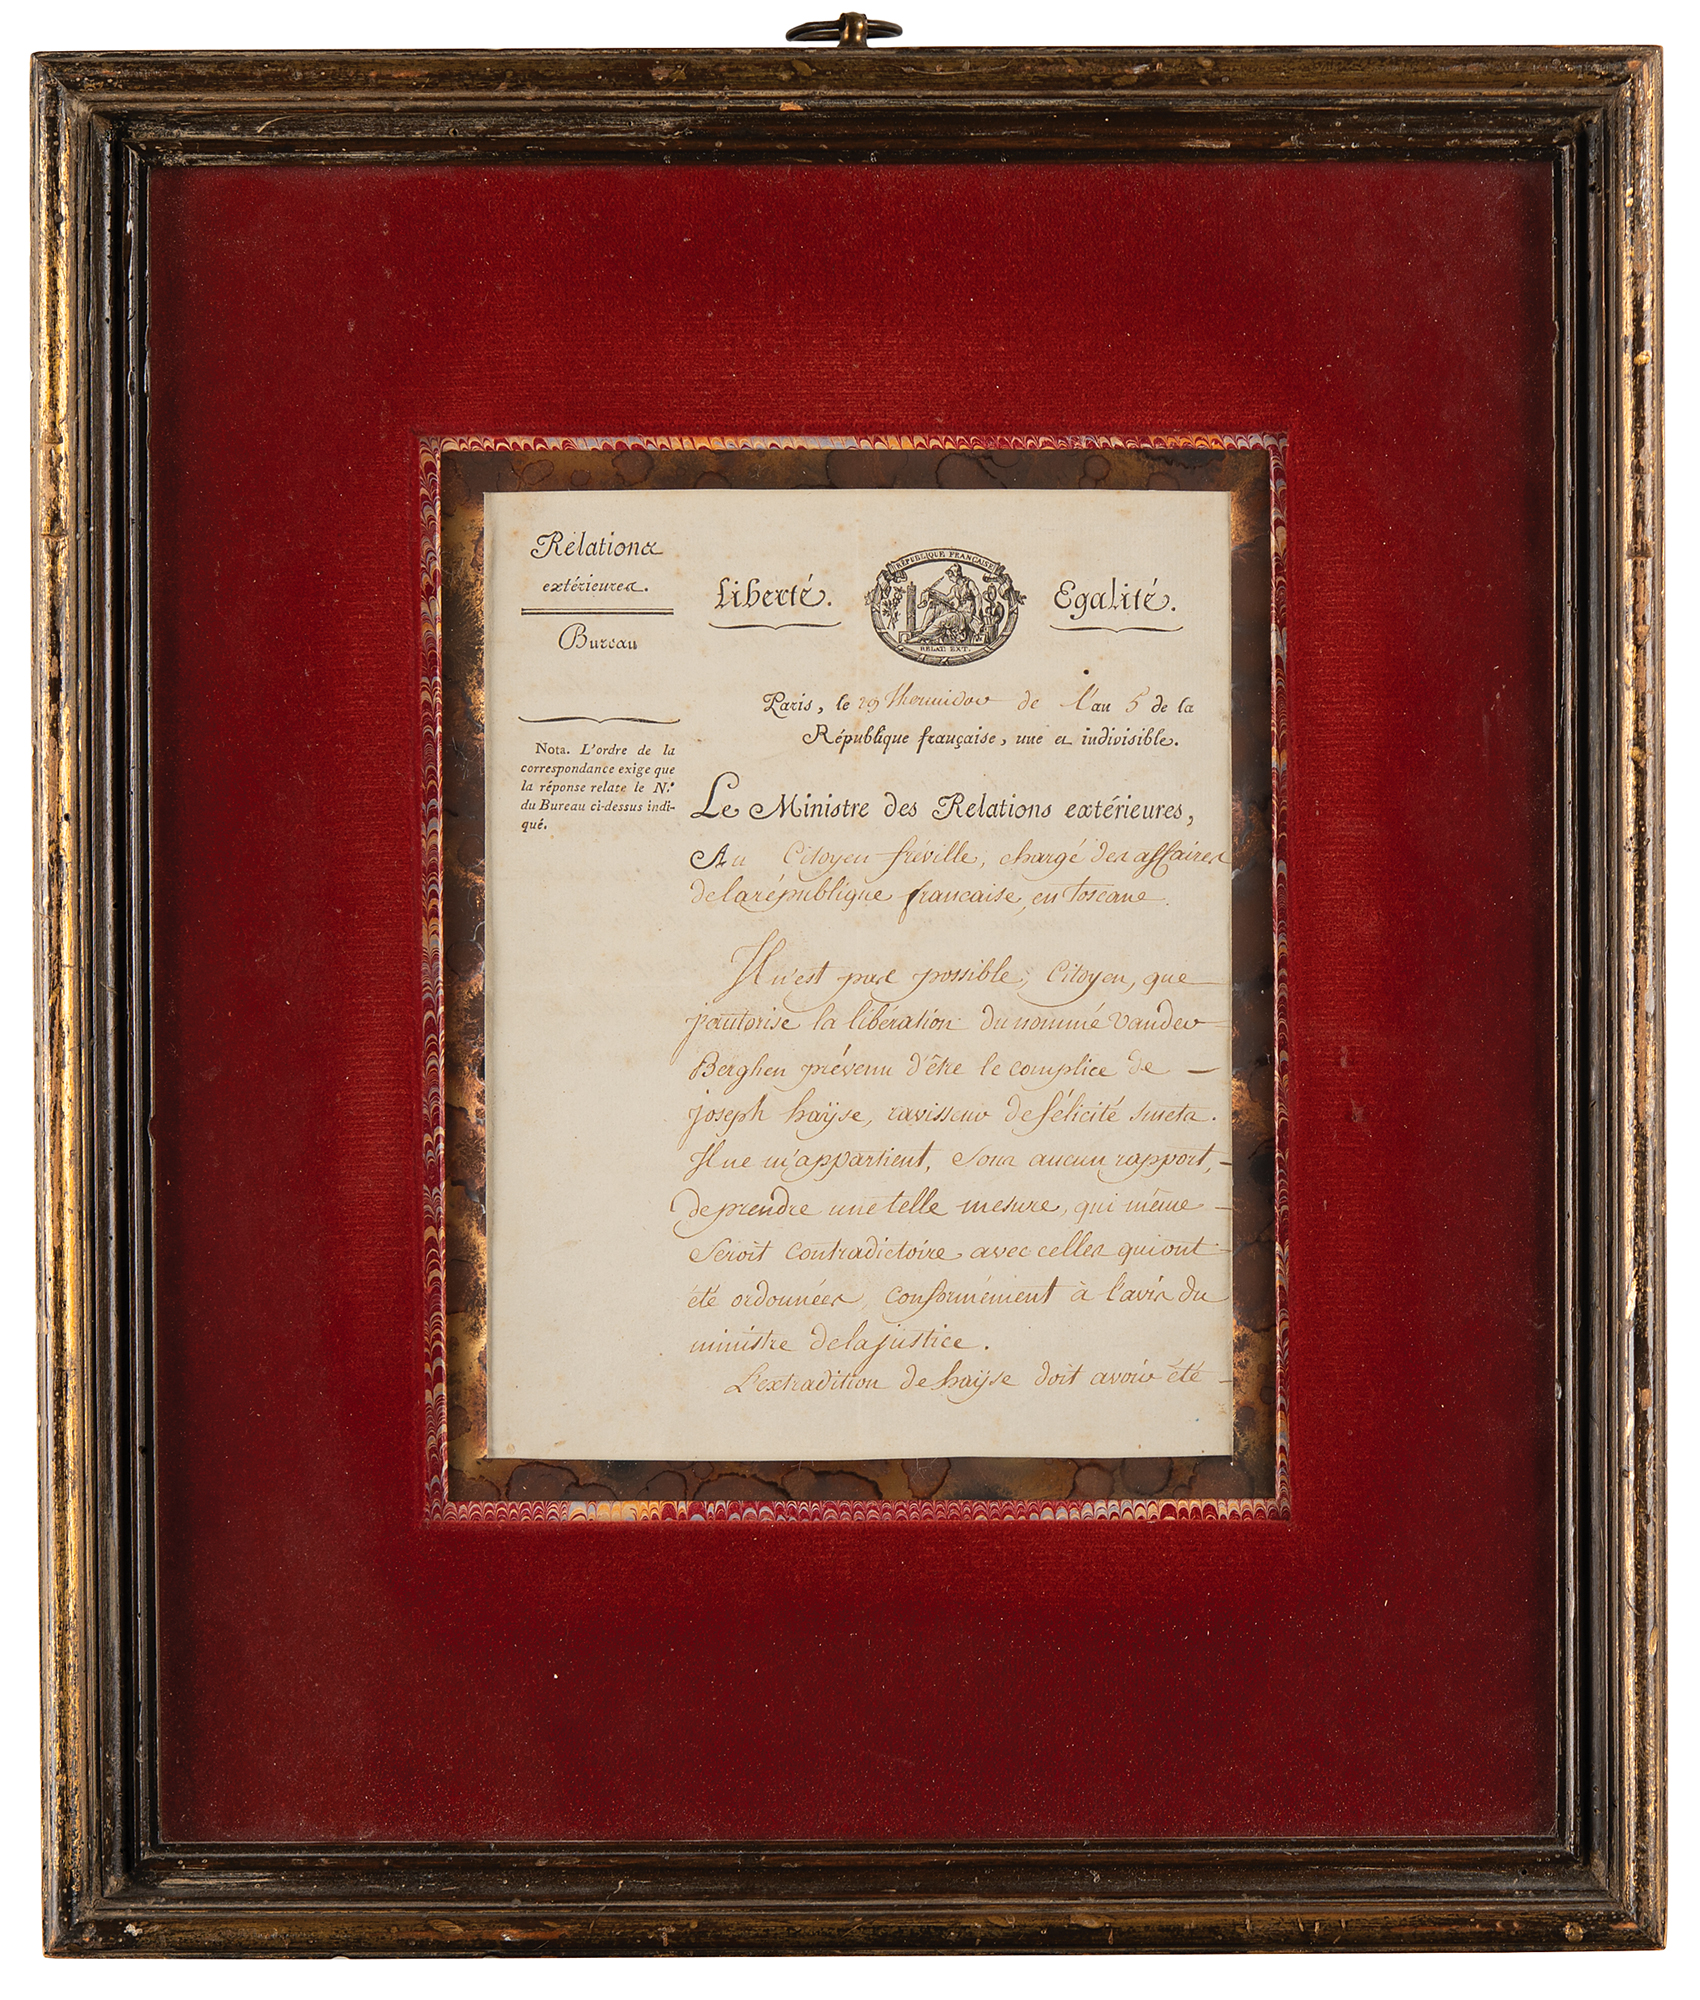 Relations
extérieures.
Bureau
Nota. L'ordre de la
correspondance exige que
la réponse relate le N.º
du Bureau ci-dessus indi-
qué.
Liberté.
RÉPUBLIQUE FRANÇAISE
RELAT. EXT.
Egalité.
Paris, le 29 Thermidor de l'an 5 de la
République française, une et indivisible.
Le Ministre des Relations extérieures,
Au Citoyen fréville, chargé des affaires
de la république francaise, en toscane.
Il n'est pas possible, Citoyen, que
j'autorise la libération du nommé Vander
Berghen prévenu d'être le complice de —
joseph haÿse, ravisseur de félicité smets.
Il ne m'appartient, sous aucun rapport, —
de prendre une telle mesure, qui même —
seroit contradictoire avec celles qui ont —
été ordonnées, conformément à l'avis du
ministre de la justice.
L'extradition de haÿse doit avoir été —